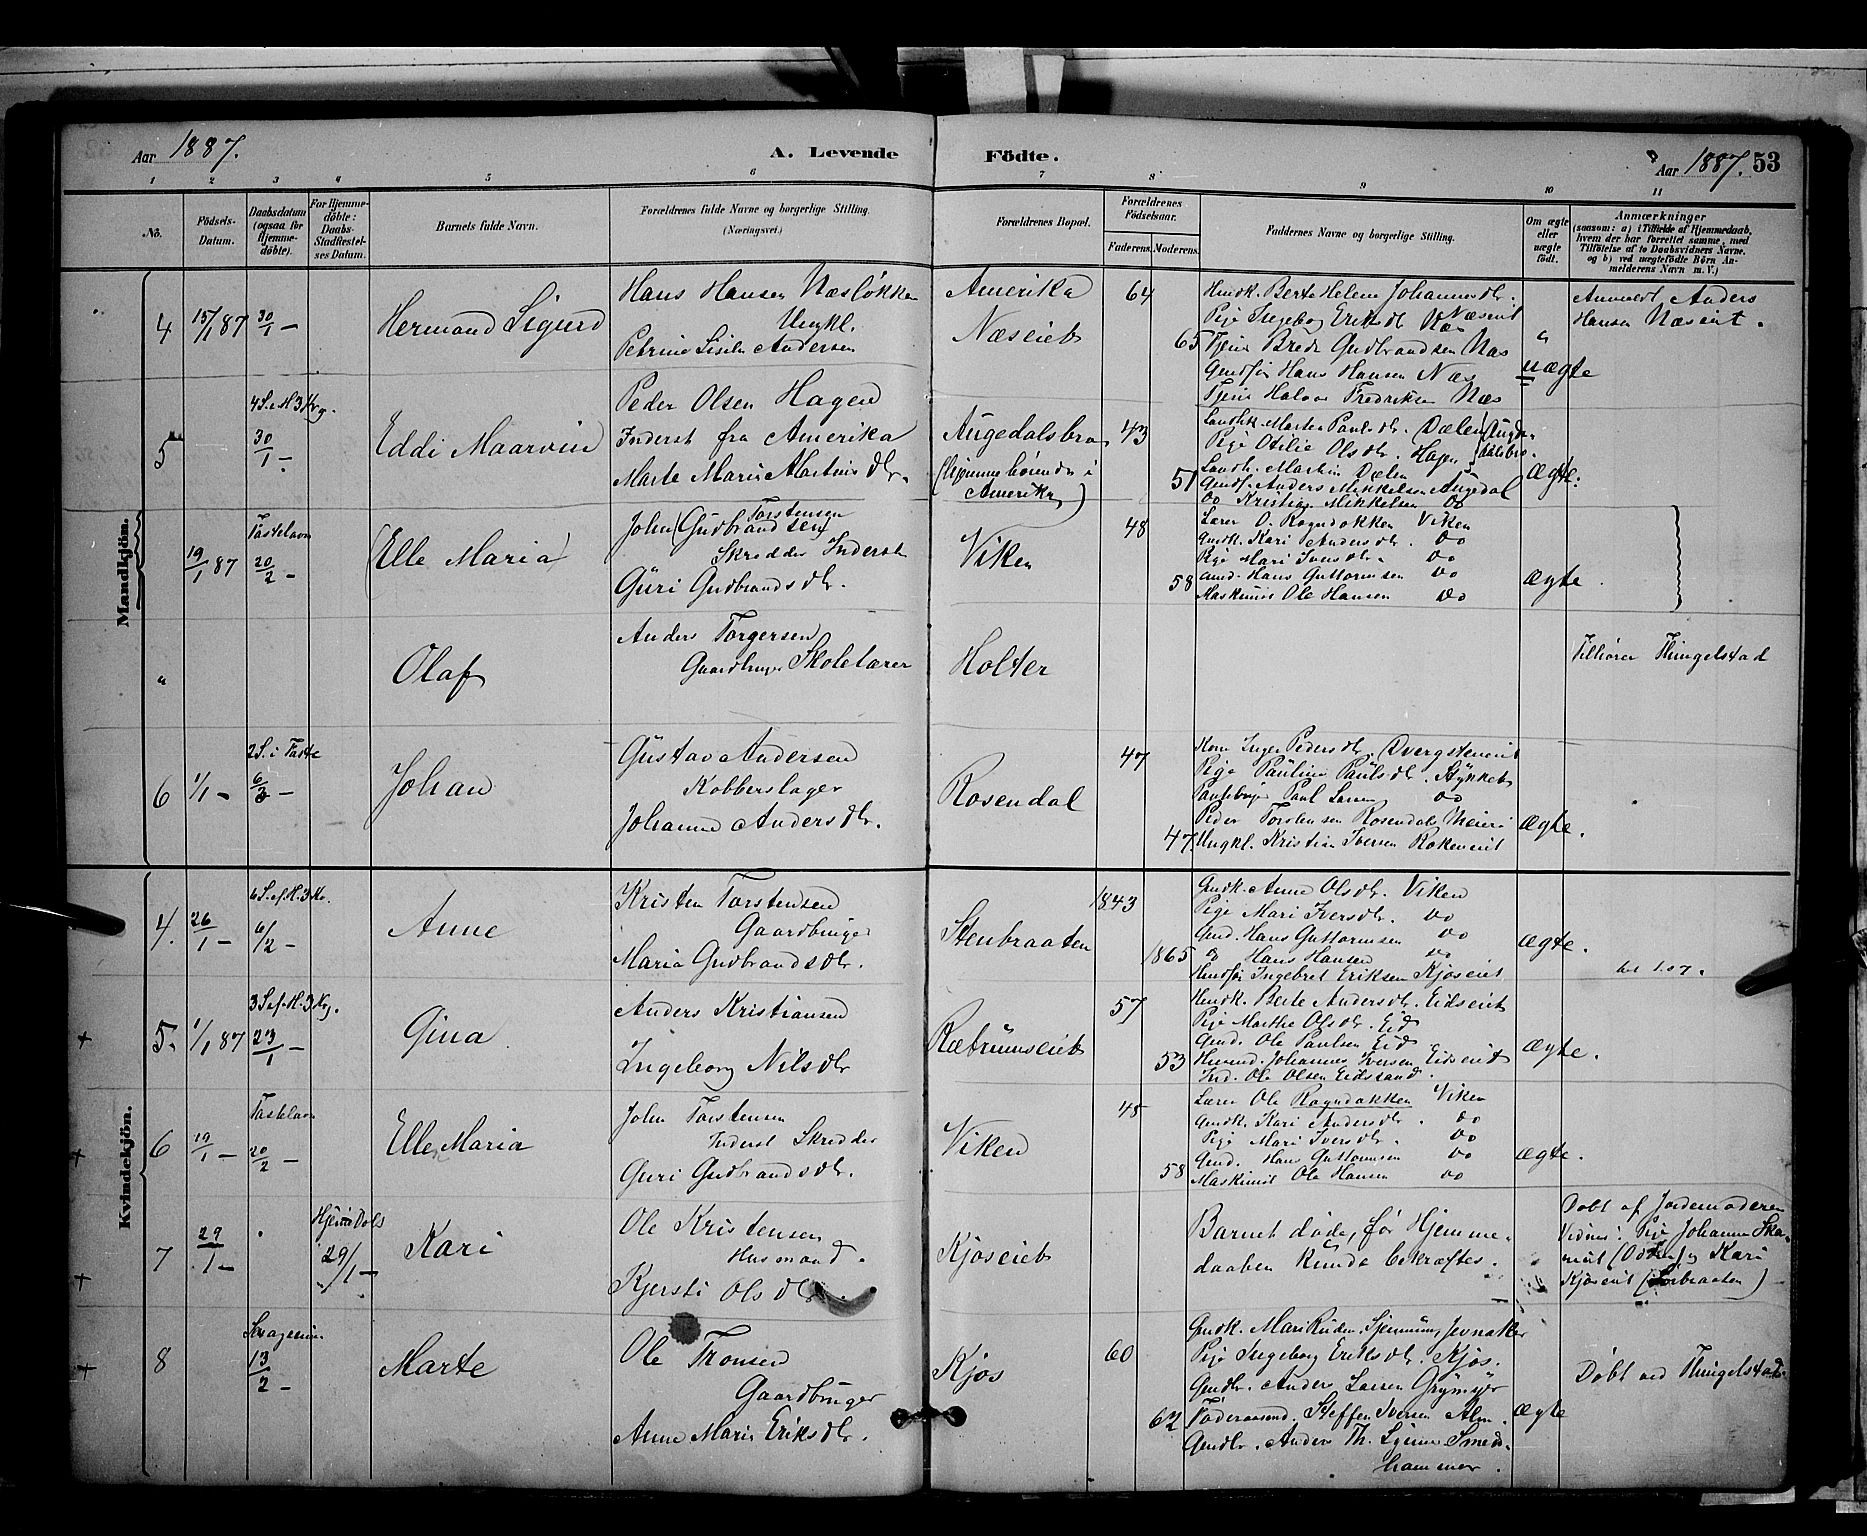 Aar 1887. A. Levende Födte. Aar 1887. 53
1 2 3 4 5 6 7 8 9 10 11
No.
Födsels-Datum.
Daabsdatum (ogsaa for Hjemmedöbte).
For Hjemmedöbte: Daabs-Stadfæstelses Datum.
Barnets fulde Navn.
Forældrenes fulde Navne og borgerlige Stilling.
(Næringsvei.)
Forældrenes Bopæl.
Forældrenes Födselsaar.
Faderens. Moderens.
Faddernes Navne og borgerlige Stilling.
Om ægte eller uægte födt.
Anmærkninger
(saasom: a) i Tilfælde af Hjemmedaab, hvem der har forrettet samme, med Tilföielse af to Daabsvidners Navne, og b) ved uægtefödte Börn Anmelderens Navn m. V.)
Mandkjön.
4 15/1 87 30/1 – Hermand Sigurd
Hans Hansen Næsløkken
Ungkl.
Petrine Andersen
Amerika
Næseieb
64
65
Husk. Berte Helene Johannesdtr. Næseiet
Pige Ingeborg Eriksdtr Næs
Tjen. Brede Gudbrandsen Næs
Gmdf. Hans Hansen Næs
Tjen. Halvor Fredriksen Næs
uægte
Anmeldt Anders
Hansen Næseiet.
5 4 S. e. H. 3 Kg. 30/1 – Eddi Maarvin
Peder Olsen Hagen
Inderst fra Amerika
Marte Marie Martinsdtr.
Augedalsbra
(hjemmehørende i
Amerika)
43
51
Marte Paulsdtr. Dælen
Pige Otilie Olsdtr. Hagen
Martin Dælen
Gmdf. Anders Mikkelsen Augedal
Do Kristian Mikkelsen Do
ægte.
19/1 87 Fastelavn 20/2 – (Elle Maria)
John (Gudbrandsen) Torstensen
Skrædder Inderst
Guri Gudbrandsdtr.
Viken
48
58
Lærer O. Rogndokken Viken
Gmdk. Kari Andersdtr. Do
Pige Mari Iversdtr. Do
Gmd. Hans Guttormsen Do
Maskinist Ole Hansen Do
ægte.
„ Olaf
Anders Torgersen
Gaardbruger Skolelærer
Holter
Tilhører Thingelstad
6 1/1 – 2 S. i Faste 6/3 – Johan
Gustav Andersen
Kobberslager
Johanne Andersdtr.
Rosendal
47
47.
Kone Inger Pedersdtr. Dvergsteneiet
Pige Pauline Paulsdtr. Stykket
Paul Larsen Do
Peder Torstensen Rosendals Meieri
Ungkl. Kristian Iversen Rokeneiet
ægte.
Kvindekjön.
4. 26/1 – 6 S. e. H. 3 K. 6/2 – Anne
Kristen Torstensen
Gaardbruger
Maria Gudbrandsdtr.
Stenbraaten
1843
1865
Gmdk. Anne Olsdtr. Viken
Pige Mari Iversdtr. Do
Gmd. Hans Guttormsen Do
Do Hans Hansen Do
Husfør Ingebret Eriksen Kjøseiet
ægte.
+ 5. 1/1 87 3 S. e. H. 3 Kg. 23/1 – Gina
Anders Kristiansen
Ingeborg Nilsdtr
Ræbrumseieb
57
53
Husk. Berte Andersdtr. Eidseiet
Pige Marthe Olsdtr. Eid
Gmd. Ole Paulsen Eid
Husmd. Johannes Iversen Eidseiet
Ind. Ole Olsen Eidssand.
ægte.
+ 6 19/1 – Fastelavn 20/2 – Elle Maria
John Torstensen
Inderst Skrædder
Guri Gudbrandsdtr.
Viken
48
58
Lærer Ole Rogndokken Viken
Gmdk. Kari Andersdtr. Do
Pige Mari Iversdtr. Do
Gmd. Hans Guttormsen Do
Maskinist Ole Hansen Do
ægte.
+ 7 29/1 – Hjem Dobs 29/1 – Kari
Ole Kristensen
Husmand.
Kjersti Olsdtr.
Kjøseieb
Barnet døde, før Hjemme-
daaben kunde bekræftes.
Døbt af Jordemoderen
Vidner: Pige Johanne Ska-
eiet og Kari
Kjøseiet
+ 8 13/2 – Marte
Ole Tronsen
Gaardbruger
Anne Marie Eriksdtr.
Kjøs
60
62
Gmdk. Mari Ruden, Jevnaker
Pige Ingeborg Eriksdtr. Kjøs.
Gmdbr. Anders Larsen Grymyr
Føderaadsmd. Steffen Iversen Alm.
Gmdbr. Anders Th. Lynne Smeds-
hammer.
ægte
Døbt ved Thingelstad.